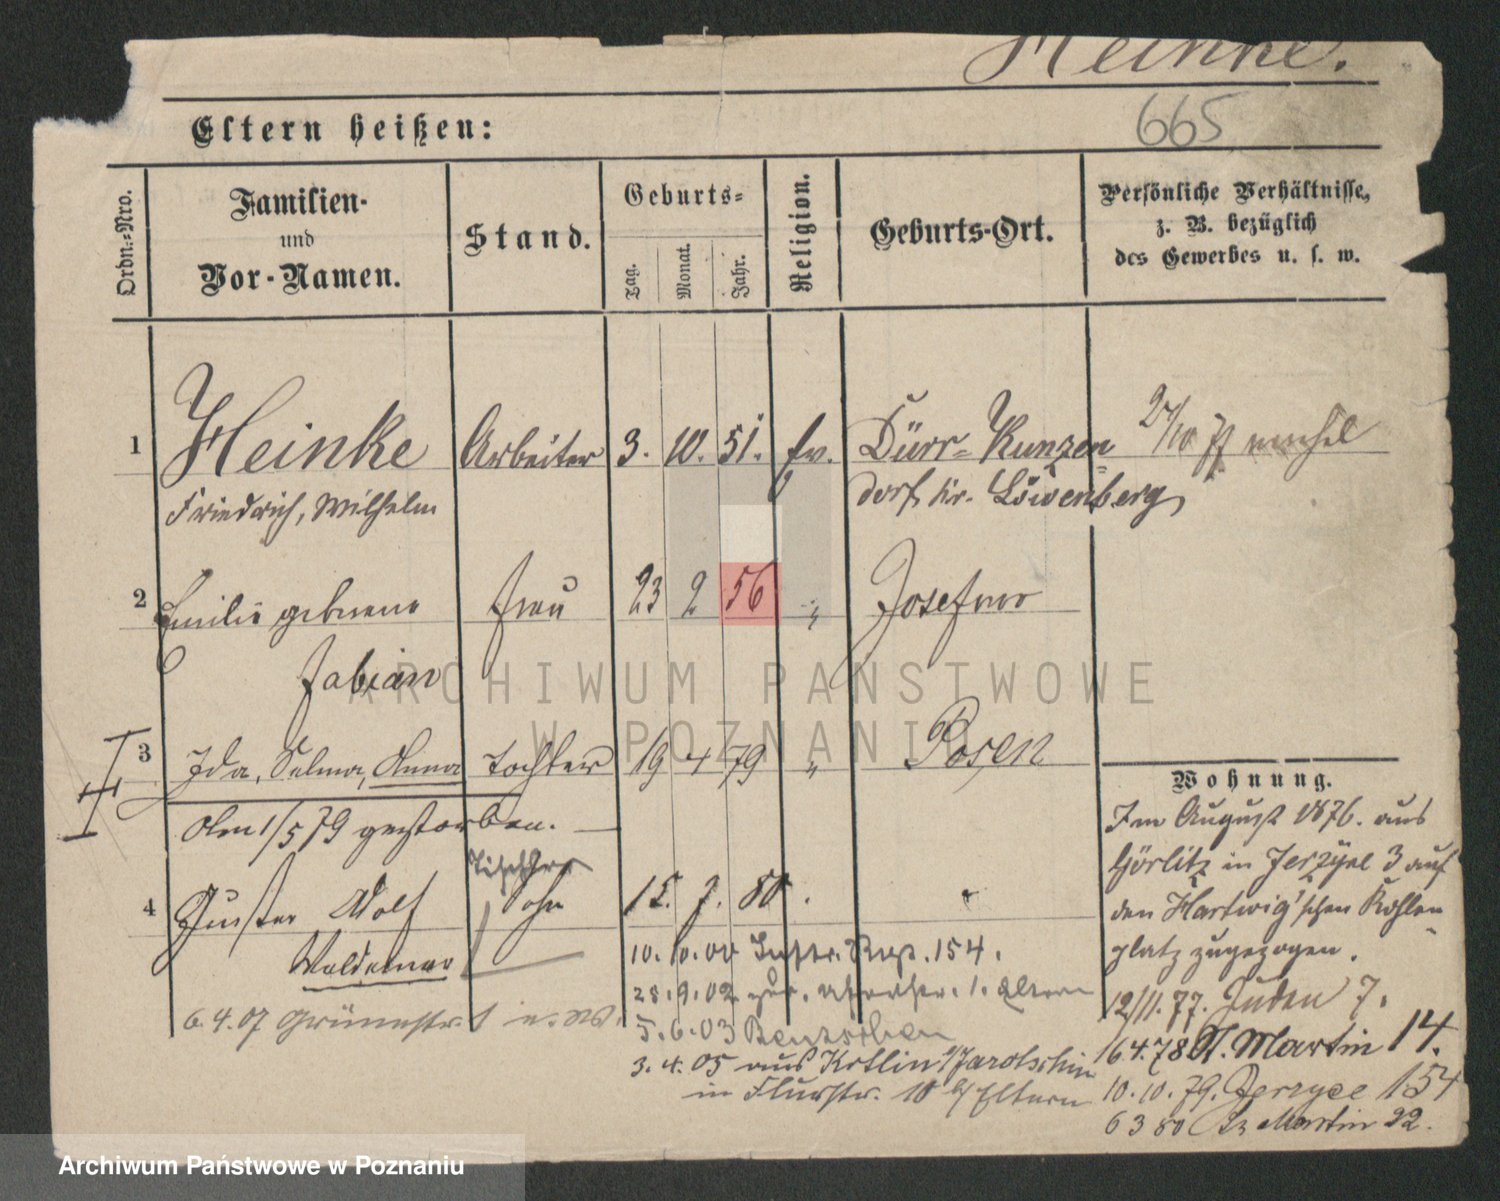 Heinke.
665
Eltern heißen:
Ordn.-Nro.
Familien-
und
Vor-Namen.
Stand.
Geburts-
Tag.
Monat.
Jahr.
Religion.
Geburts-Ort.
Persönliche Verhältnisse,
z. B. bezüglich
des Gewerbes u. s. w.
1 Heinke Arbeiter 3. 10. 51. ev. Dürr-Kunzen 27/10 77
Friedrich, Wilhelm dorf, Kr. Löwenberg
2 Emilie geborene Frau 23 2 56 „
Fabian
3 Ida, Selma, Anna Tochter 19 4 79 „ Posen
Am 1/5 79 gestorben.
Tischler
4 Gustav Adolf Sohn 15. 7. 80.
Waldemar
6.4.07
10.10.00 Inftr. Rgt. 154.
28.9.02
5.6.03 Bentschen
3.4.05 aus Kotlin b/Jarotschin
in Flurstr. 10 b/ Eltern
Wohnung.
Im August 1876. aus
Görlitz in Jerzyce 3 auf
den Hartwig'schen Kohlen-
platz zugezogen.
12/11. 77. Juden 7.
6.4.78 St. Martin 14.
10.10.79. Jerzyce 154
6 3 80 St Martin 22.
ARCHIWUM PAŃSTWOWE
W POZNANIU
Archiwum Państwowe w Poznaniu